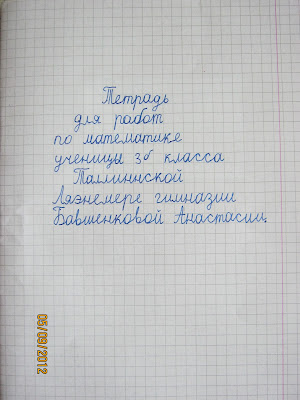 Тетрадь
для работ
по математике
ученицы 3б класса
Таллиннской
Ляэнемере гимназии
Бавшенковой Анастасии.
05/09/2012